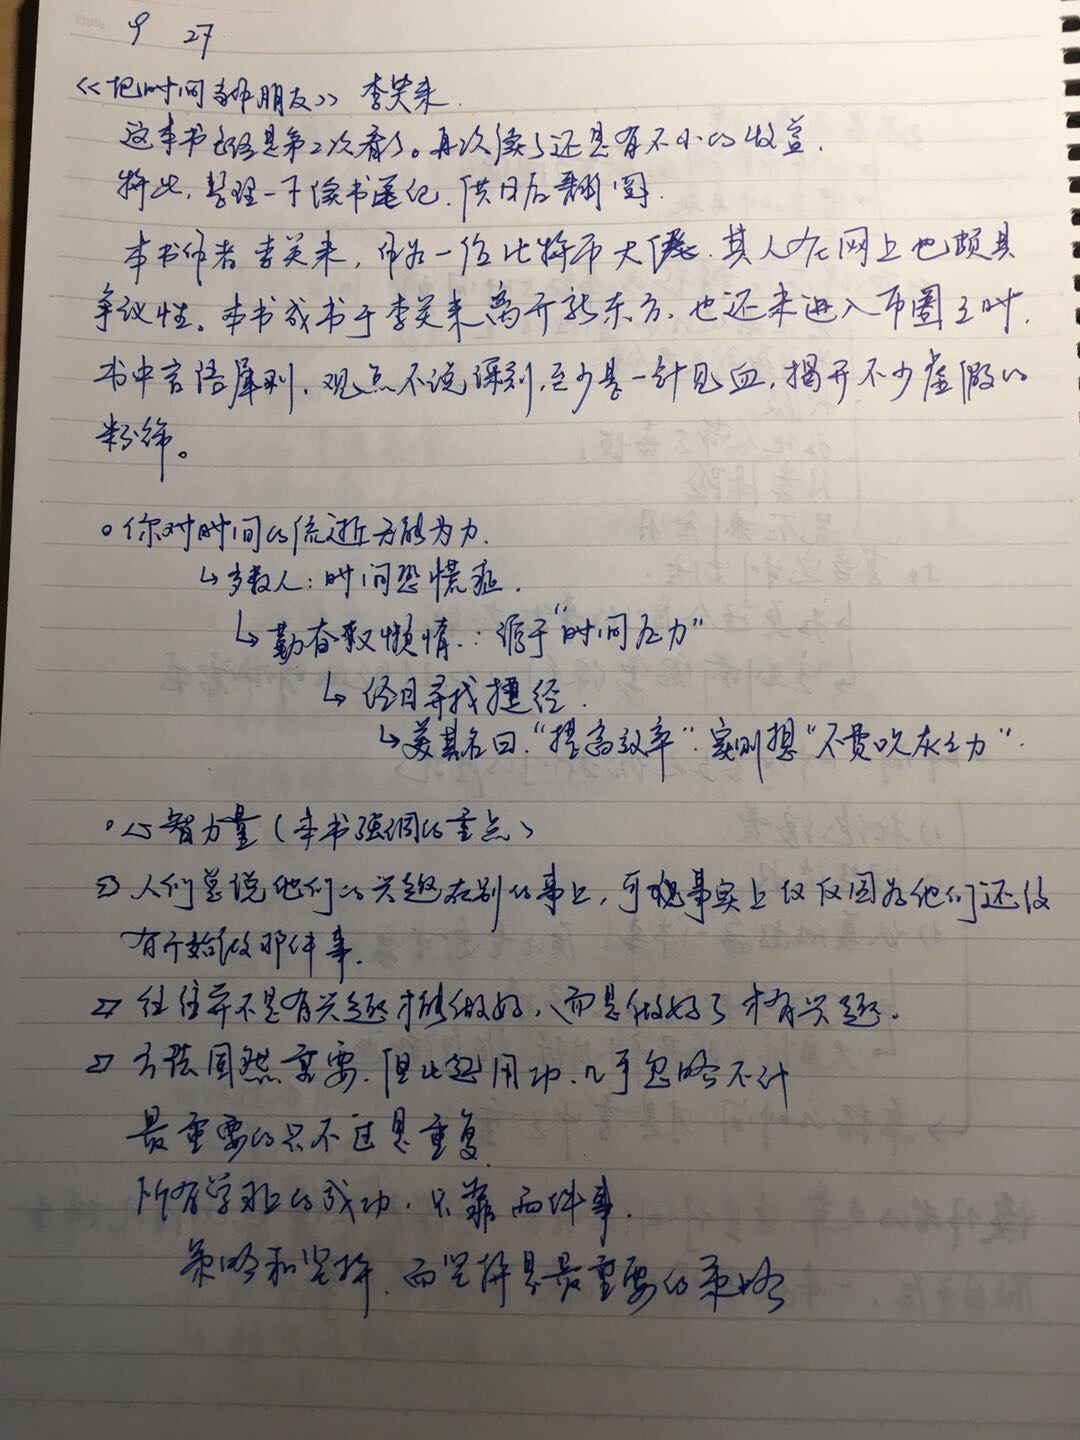 Date 9 27
《把时间当作朋友》 李笑来
这本书已经是第2次看了。再次读了还是有不小的收益.
特此,整理一下读书笔记.供日后翻阅.
本书作者李笑来,作为一位比特币大佬.其人在网上也颇具
争议性。本书成书于李笑来离开新东方、也还未进入币圈之时.
书中言语犀利,观点不说深刻,至少是一针见血,揭开不少虚假的
粉饰。
。你对时间的流逝无能为力.
↳多数人:时间恐慌症.
↳勤奋又懒惰.:源于"时间压力"
↳终日寻找捷径.
↳美其名曰."提高效率".实则想"不费吹灰之力".
·心智力量(本书强调的重点)
⇒人们总说他们的兴趣在别的事上,可事实上仅仅因为他们还没
有开始做那件事.
⇒往往并不是有兴趣才能做好、而是做好了才有兴趣.
⇒方法固然重要.但比起用功.几乎忽略不计
最重要的只不过是重复.
所有学习上的成功.只靠两件事.
策略和坚持.而坚持是最重要的策略